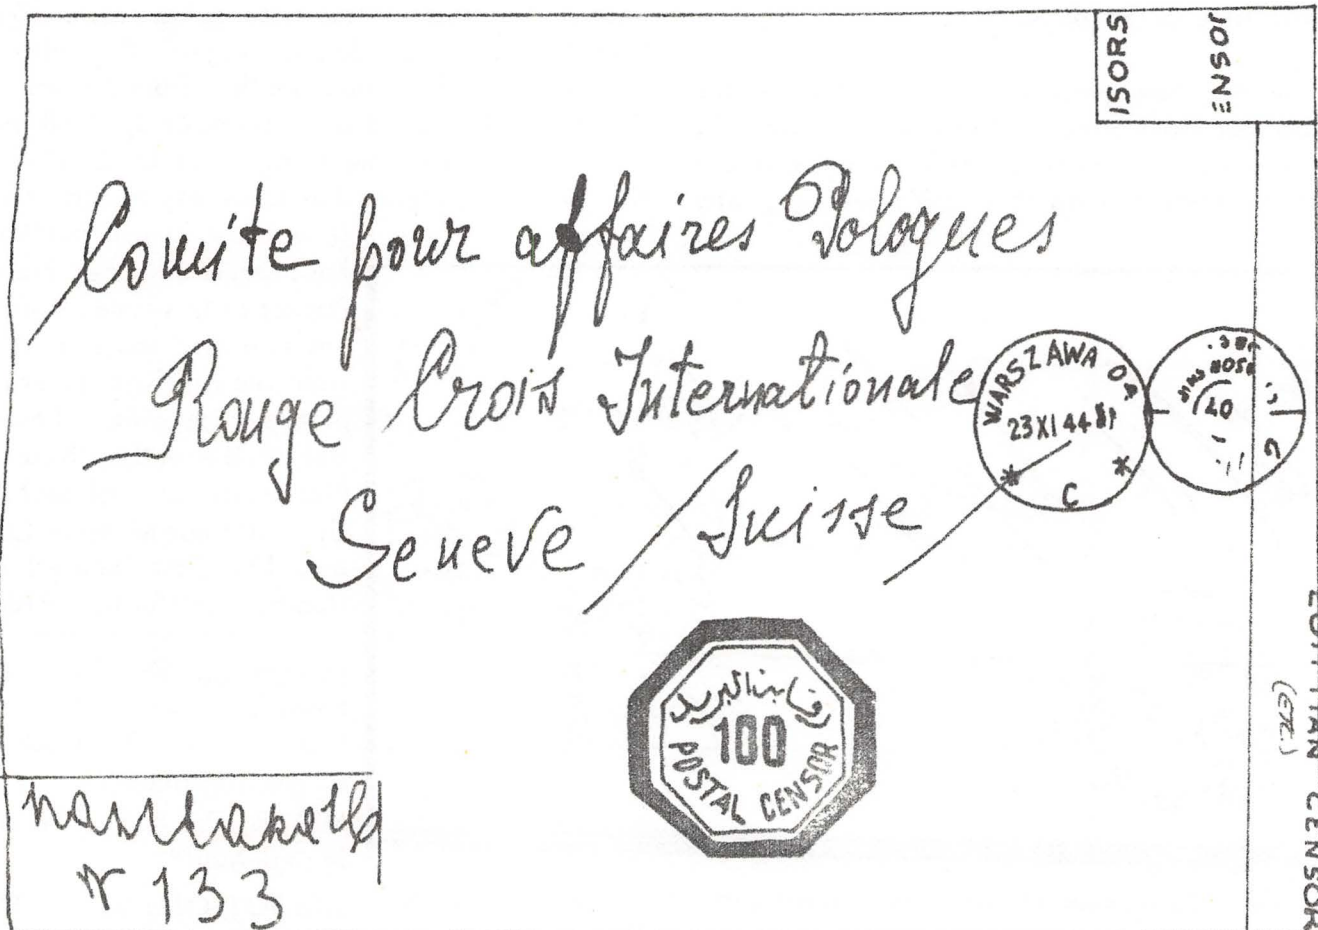 ISORS
ENSOr
Comite pour affaires Pologues
Rouge Crois Internationale
Geneve / Suisse /
WARSZAWA OA
23 XI 44
* C *
رقابة البريد
100
POSTAL CENSOR
(ETC.)
CENSOR
133